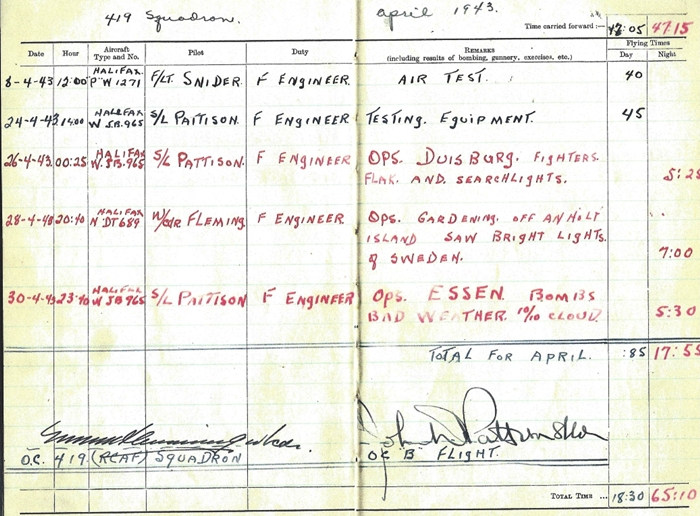 419 Squadron. april 1943.
Time carried forward:— 17:05 47.15
Date Hour Aircraft Type and No. Pilot Duty REMARKS (including results of bombing, gunnery, exercises, etc.) Flying Times Day Night
8-4-43 12:00 HALIFAX P W1271 F/LT. SNIDER. F ENGINEER. AIR TEST. 40
24-4-43 14:00 HALIFAX W JB.965 S/L PATTISON. F ENGINEER. TESTING. EQUIPMENT. 45
26-4-43 00:25 HALIFAX W. JB.965 S/L PATTISON. F ENGINEER OPS. DUISBURG. FIGHTERS.
FLAK. AND. SEARCHLIGHTS. 5:25
28-4-43 20:40 HALIFAX N DT689 W/CDR FLEMING. F ENGINEER. OPS. GARDENING. OFF ANHOLT
ISLAND SAW BRIGHT LIGHTS.
of SWEDEN. 7:00
30-4-43 23:40 HALIFAX W JB965 S/L PATTISON F ENGINEER OPS. ESSEN. BOMBS
BAD WEATHER. 10/10 CLOUD. 5:30
TOTAL FOR APRIL. :85 17:55
O.C. 419 (RCAF) SQUADRON OC "B" FLIGHT.
TOTAL TIME ... 18:30 65:10